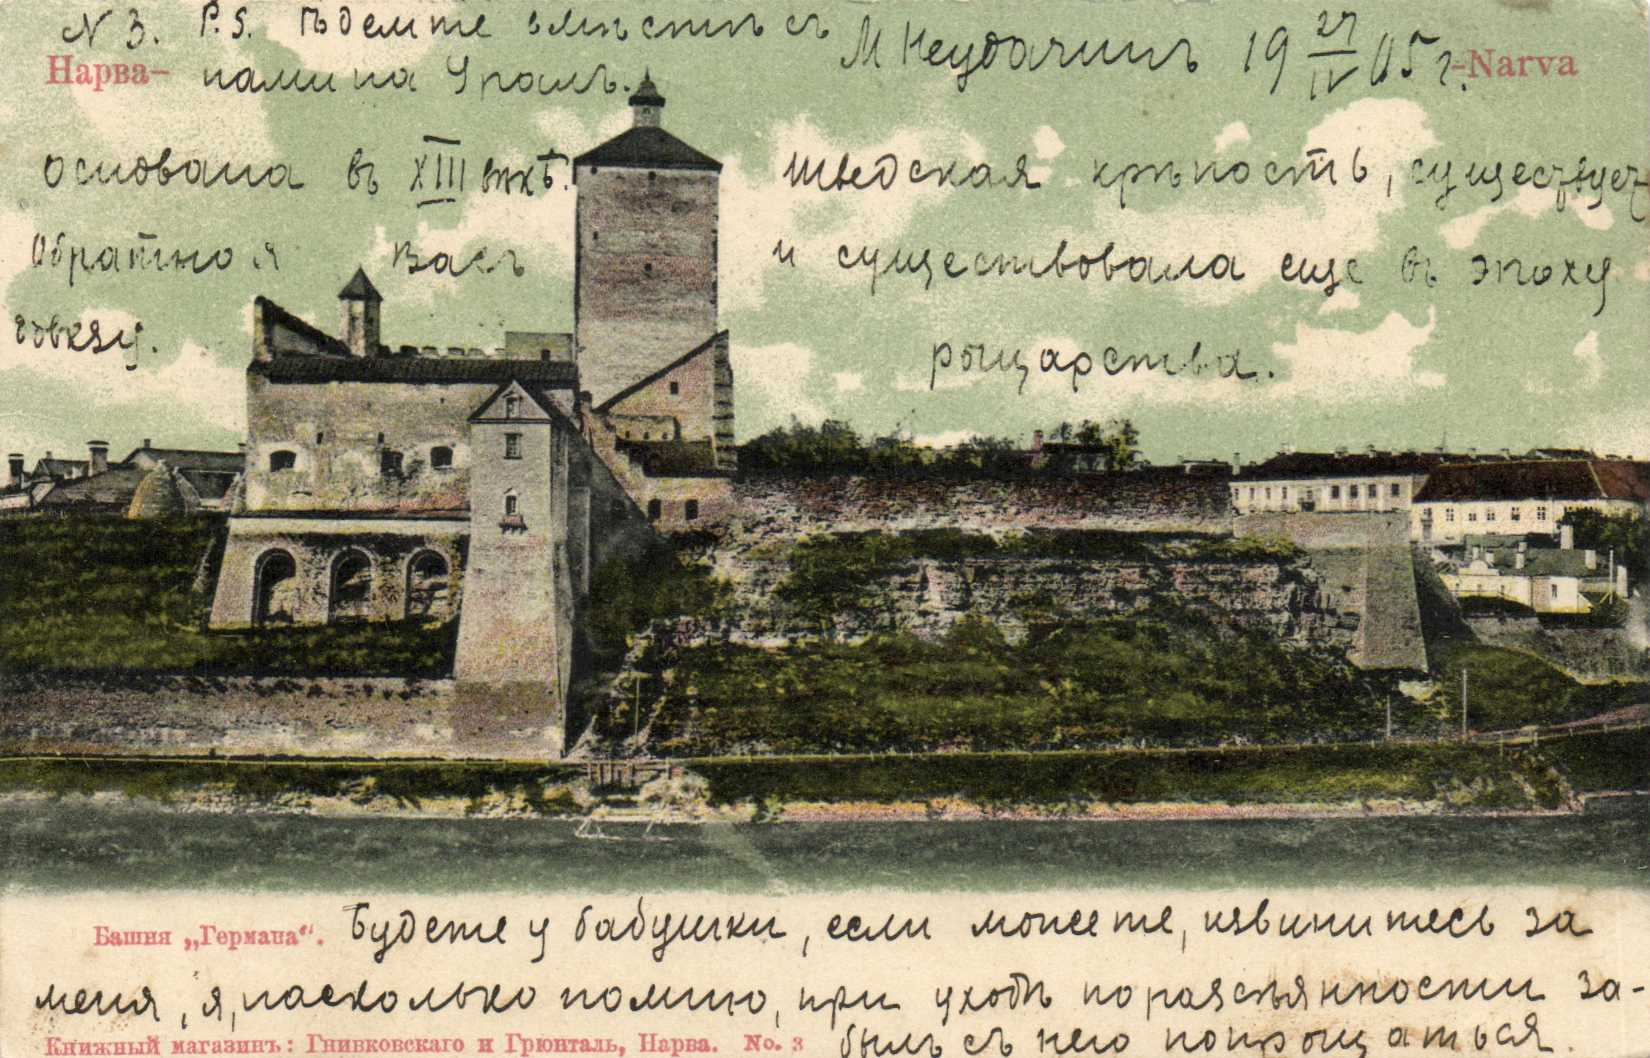 N 3. P.S. Ѣдемте вмѣстѣ съ
М Неудачинъ 19 27/IV 05 г.
Нарва- нами на Уралъ. -Narva
основана въ XIII вкѣ. шведская крѣпость, существует
Обратно я Васъ и существовала еще въ эпоху
рыцарства.
Башня „Германа“. Будете у бабушки, если можете, извинитесь за
меня, я, насколько помню, при уходѣ по разсѣянности за-
Книжный магазинъ: Гнивковскаго и Грюнталь, Нарва. No. 3 былъ съ нею попрощаться.